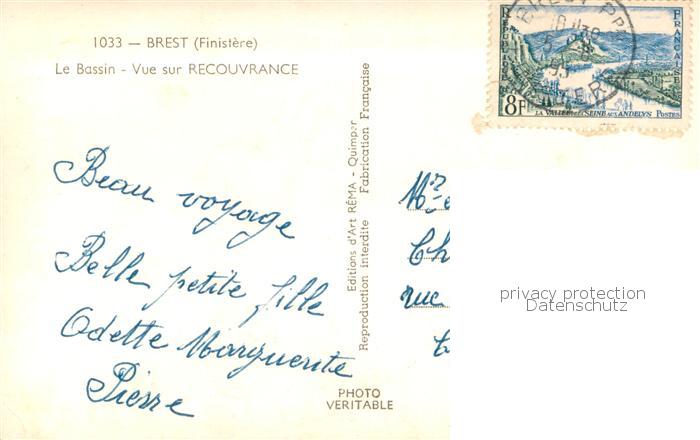 1033 — BREST (Finistère)
Le Bassin - Vue sur RECOUVRANCE
Beau voyage
Belle petite fille
Odette Marguerite
Pierre
PHOTO
VERITABLE
Editions d'Art RÉMA - Quimper
Reproduction interdite Fabrication Française
REPUBLIQUE
FRANCAISE
8F
LA VALLEE DE LA SEINE AUX ANDELYS POSTES
Mr
Ch
rue
privacy protection
Datenschutz